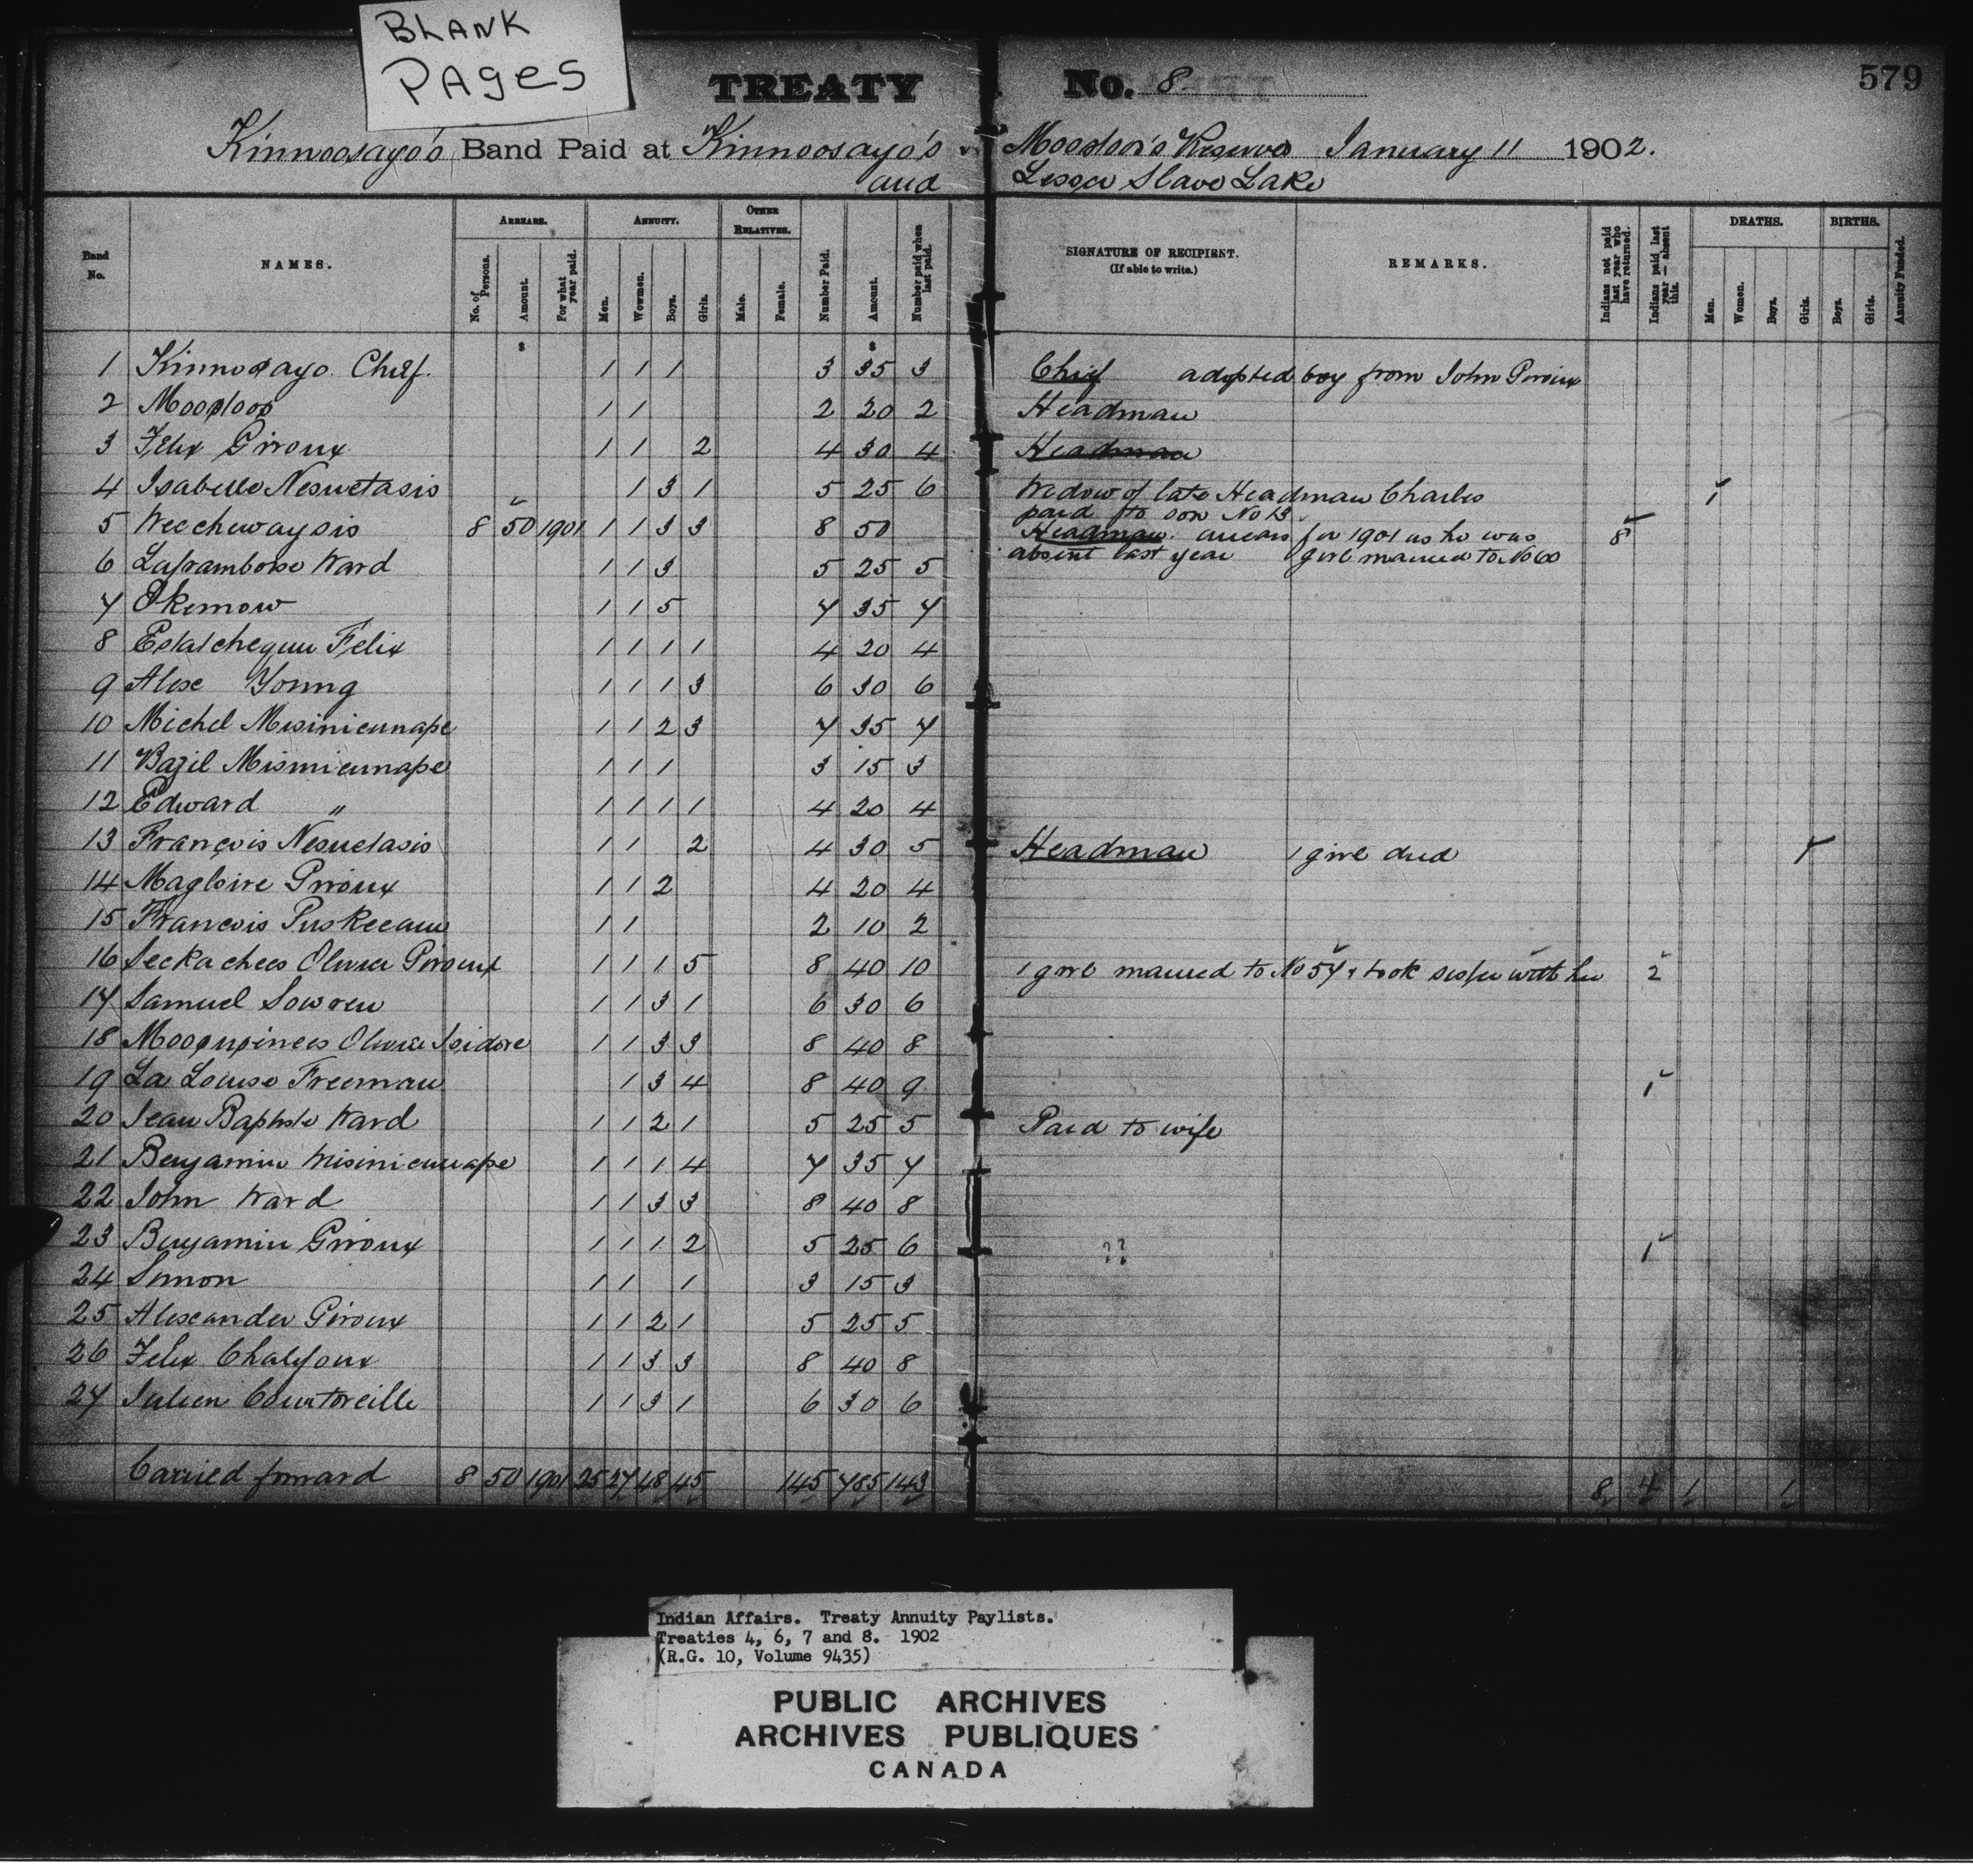 BLANK
PAGES
TREATY No. 8. 579
Kinnoosayo's Band Paid at Kinnoosayo's Moostoos's Reserves January 11 1902.
and Lesser Slave Lake
Band No. NAMES. ARREARS. ANNUITY. OTHER RELATIVES. SIGNATURE OF RECIPIENT. (If able to write.) REMARKS. DEATHS. BIRTHS.
No. of Persons. Amount. For what year paid. Men. Women. Boys. Girls. Male. Female. Number Paid. Amount. Number paid when last paid. Indians not paid last year who have returned. Indians paid last year — absent this. Men. Women. Boys. Girls. Boys. Girls. Annuity Funded.
$ $
1 Kinnosayo Chief. 1 1 1 3 35 3 Chief adopted boy from John Giroux
2 Moostoos 1 1 2 20 2 Headman
3 Felix Giroux 1 1 2 4 30 4 Headman
4 Isabelle Nesuetasis 1 3 1 5 25 6 Widow of late Headman Charles 1
paid to son No 13.
5 Weechewaysis 8 50 1901 1 1 3 3 8 50 Headman. arrears for 1901 as he was 8
absent last year girl married to No 60
6 Laframboise Ward 1 1 3 5 25 5
7 Okemow 1 1 5 7 35 7
8 Estatchequu Felix 1 1 1 1 4 20 4
9 Alex Young 1 1 1 3 6 30 6
10 Michel Misinicunape 1 1 2 3 7 35 7
11 Bazil Misinicunape 1 1 1 3 15 3
12 Edward " 1 1 1 1 4 20 4
13 François Nesuetasis 1 1 2 4 30 5 Headman 1 girl died 1
14 Magloire Giroux 1 1 2 4 20 4
15 Francois Puskeeauu 1 1 2 10 2
16 Seekachees Olivier Giroux 1 1 1 5 8 40 10 1 girl married to No 57 & took sister with her 2
17 Samuel Sowren 1 1 3 1 6 30 6
18 Moosupinees Olivier Isidore 1 1 3 3 8 40 8
19 La Louise Freeman 1 3 4 8 40 9 1
20 Jean Baptiste Ward 1 1 2 1 5 25 5 Paid to wife
21 Benjamin Misinicunape 1 1 1 4 7 35 7
22 John Ward 1 1 3 3 8 40 8
23 Benjamin Giroux 1 1 1 2 5 25 6 ?? 1
24 Simon 1 1 1 3 15 3
25 Alexander Giroux 1 1 2 1 5 25 5
26 Felix Chalifoux 1 1 3 3 8 40 8
27 Julien Courtoreille 1 1 3 1 6 30 6
Carried forward 8 50 1901 25 27 48 45 145 785 143 8 4 1 1
Indian Affairs. Treaty Annuity Paylists.
Treaties 4, 6, 7 and 8. 1902
(R.G. 10, Volume 9435)
PUBLIC ARCHIVES
ARCHIVES PUBLIQUES
CANADA